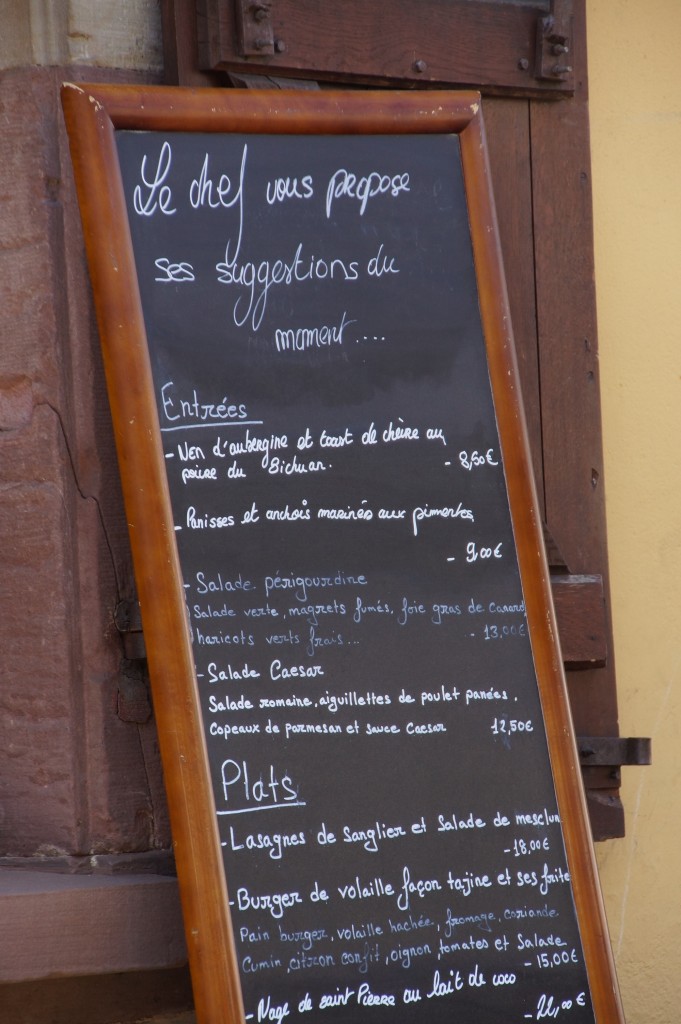 Le chef vous propose
ses suggestions du
moment....
Entrées
- Nen d'aubergine et toast de chèvre au
poivre du Sichuan. - 8,50€
- Panisses et anchois marinés aux pimentes
- 9,00€
- Salade périgourdine
Salade verte, magrets fumés, foie gras de canard
haricots verts frais... - 13,00€
- Salade Caesar
Salade romaine, aiguillettes de poulet panées.
Copeaux de parmesan et sauce Caesar 12,50€
Plats
- Lasagnes de sanglier et Salade de mesclun
- 18,00€
- Burger de volaille façon tajine et ses frite
Pain burger, volaille hachée, fromage, coriande
Cumin, citron confit, oignon, tomates et Salade
- 15,00€
- Nage de saint Pierre au lait de coco
- 22,00€